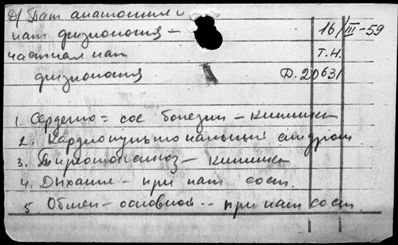 Д/ Пат анатомия и
пат физиология – 16/III-59
частная пат Т.Н.
физиология Д. 20631
1. Сердечно = сос болезни – клиника
2. Кардиопульмональный синдром
3. Тиреотоксикоз – клиника
4. Дыхание – при пат сост.
5. Обмен – основной -- при пат сост